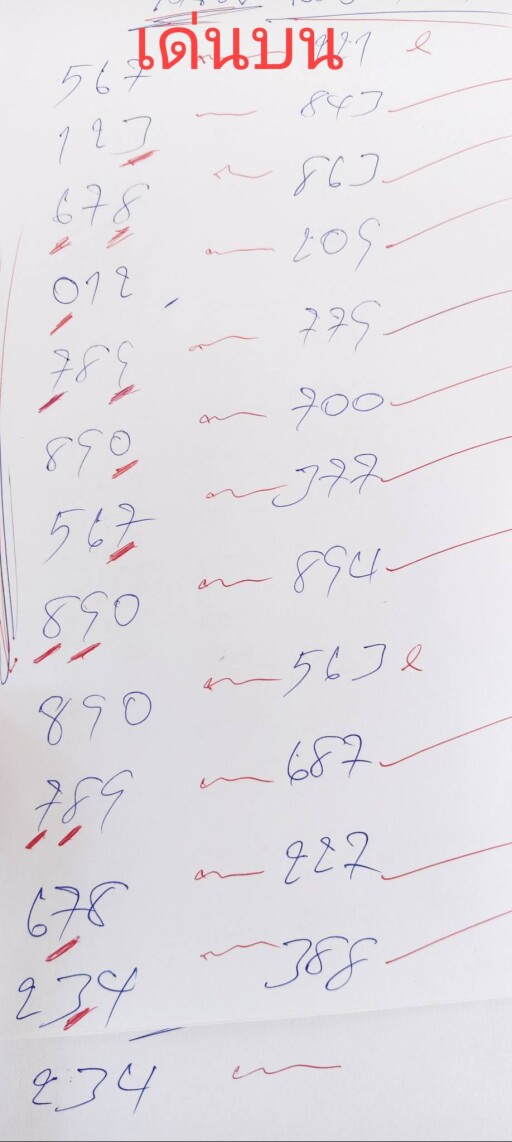 เด่นบน
567 221 e
123 843
678 863
012 209
789 779
890 700
567 377
890 894
890 563 e
789 687
678 227
234 388
234